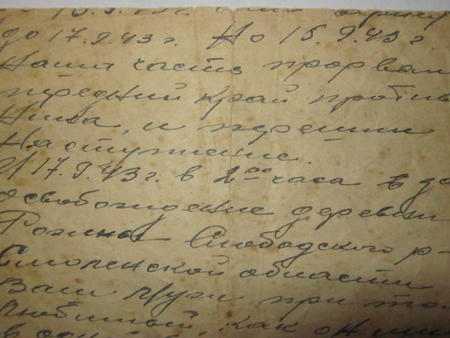 до 17.9.43 г. Но 15.9.43 г
Наша часть прорвал
передний край против
ника, и перешли
Наступление.
И 17.9.43 г. в 2 00 часа в до
освобождение деревни
Слободского р-
Смоленской области
Ваш муж при то
Любимый, как он